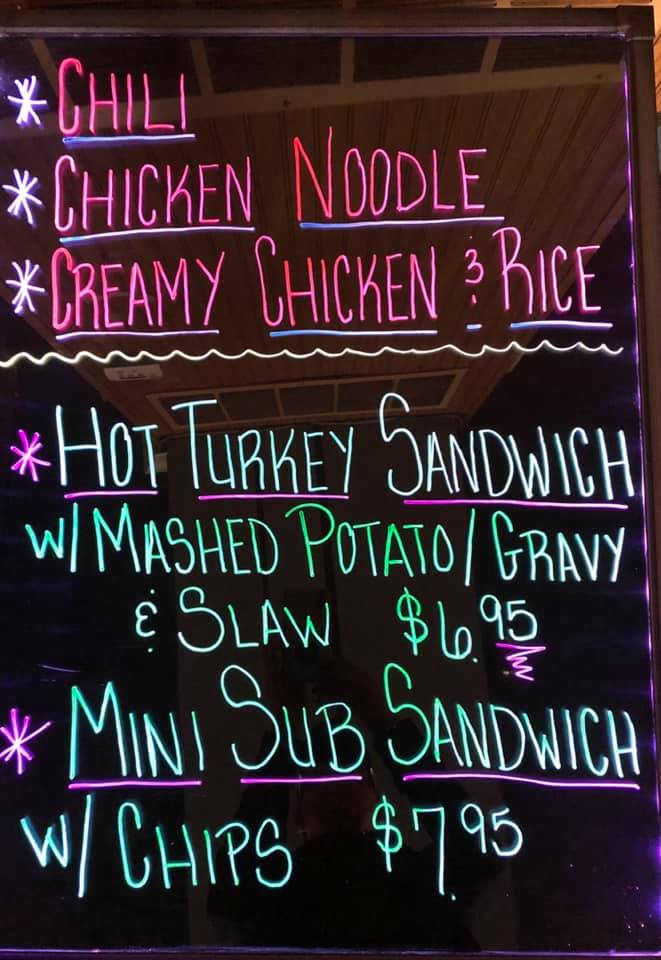 * CHILI
* CHICKEN NOODLE
* CREAMY CHICKEN & RICE
* HOT TURKEY SANDWICH
W/ MASHED POTATO / GRAVY
& SLAW $6.95
* MINI SUB SANDWICH
W/ CHIPS $7.95